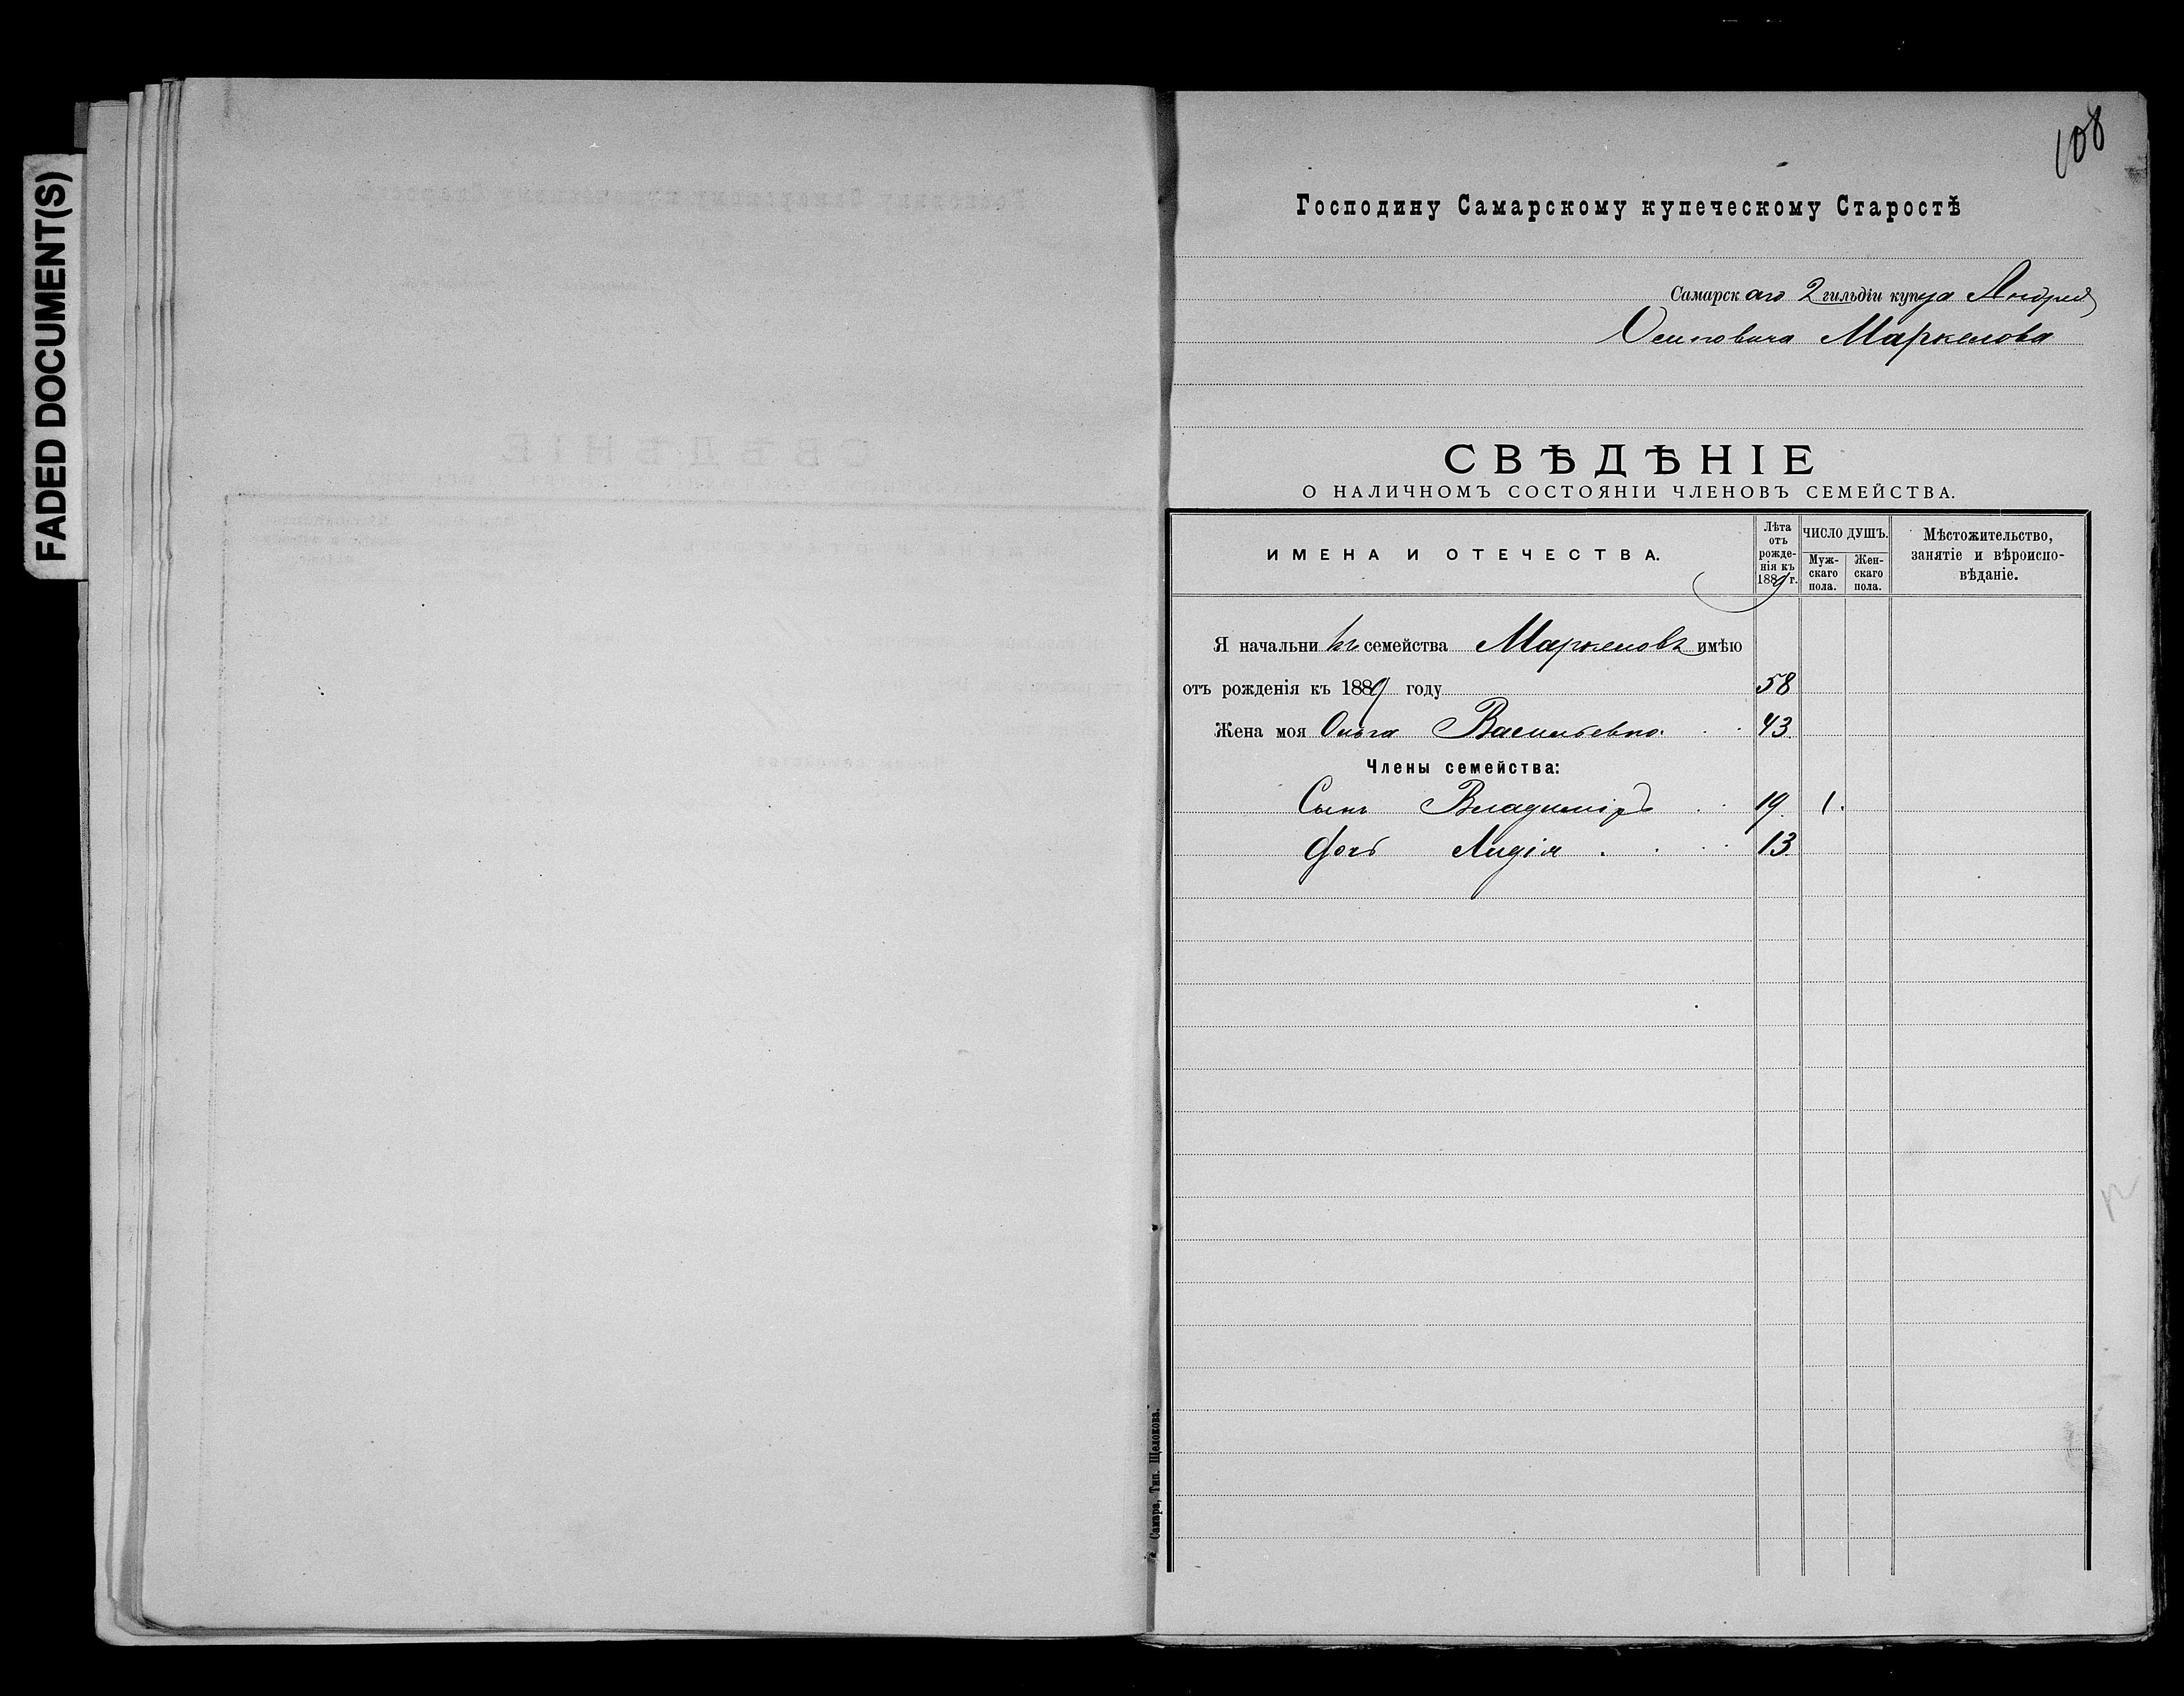 FADED DOCUMENT(S)
108
Господину Самарскому купеческому Старостѣ
Самарскаго 2 гильдіи купца Андрея
Осиповича Маркелова
СВѢДѢНІЕ
О НАЛИЧНОМЪ СОСТОЯНІИ ЧЛЕНОВЪ СЕМЕЙСТВА.
ИМЕНА И ОТЕЧЕСТВА.
Лѣта
отъ
рожде-
нія къ
1889 г.
ЧИСЛО ДУШЪ.
Муж-
скаго
пола.
Жен-
скаго
пола.
Мѣстожительство,
занятіе и вѣроиспо-
вѣданіе.
Я начальникъ семейства Маркеловъ имѣю
отъ рожденія къ 1889 году 58
Жена моя Ольга Васильевна 43
Члены семейства:
Сынъ Владиміръ 19 1
Дочь Лидія 13
Самара, Тип. Щелокова.